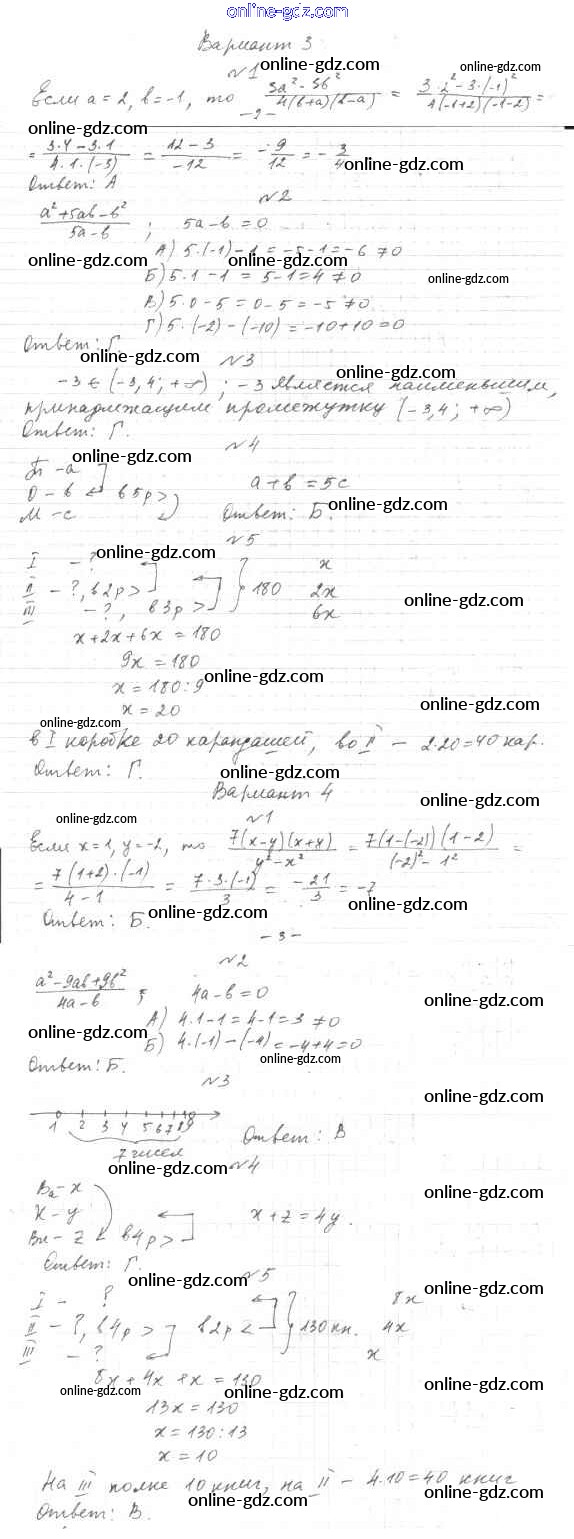 online-gdz.com
Вариант 3
online-gdz.com online-gdz.com
№1
Если a = 2, b = -1, то (3a² - 3b²)/(4(b+a)(b-a)) = (3·2² - 3·(-1)²)/(4(-1+2)(-1-2)) =
online-gdz.com
- 2 -
online-gdz.com
= (3·4 - 3·1)/(4·1·(-3)) = (12 - 3)/(-12) = -9/12 = -3/4
online-gdz.com
Ответ: А
№2
(a² + 5ab - b²)/(5a - b) ; 5a - b = 0
А) 5·(-1) - 1 = -5 - 1 = -6 ≠ 0
online-gdz.com online-gdz.com
Б) 5·1 - 1 = 5 - 1 = 4 ≠ 0
online-gdz.com
В) 5·0 - 5 = 0 - 5 = -5 ≠ 0
Г) 5·(-2) - (-10) = -10 + 10 = 0
Ответ: Г.
online-gdz.com
№3
online-gdz.com
-3 ∈ (-3,4; +∞) ; -3 является наименьшим,
принадлежащим промежутку (-3,4; +∞)
Ответ: Г.
№4
online-gdz.com
П - a
О - b в 5р > a + b = 5c
М - c Ответ: Б.
№5
online-gdz.com
I - ? x
II - ?, в 2р > 180 2x
online-gdz.com
III - ?, в 3р > 6x
x + 2x + 6x = 180
9x = 180
online-gdz.com
x = 180 : 9
x = 20
online-gdz.com
online-gdz.com
в I коробке 20 карандашей, во II - 2·20 = 40 кар.
Ответ: Г.
online-gdz.com
Вариант 4
online-gdz.com
№1
online-gdz.com
Если x = 1, y = -2, то (7(x-y)(x+y))/(y² - x²) = (7(1-(-2))(1-2))/((-2)² - 1²) =
online-gdz.com
= (7(1+2)·(-1))/(4 - 1) = (7·3·(-1))/3 = -21/3 = -7
online-gdz.com online-gdz.com
Ответ: Б.
- 3 -
№2
(a² - 9ab + 9b²)/(4a - b) ; 4a - b = 0
online-gdz.com
А) 4·1 - 1 = 4 - 1 = 3 ≠ 0
online-gdz.com
Б) 4·(-1) - (-4) = -4 + 4 = 0
online-gdz.com
Ответ: Б.
№3
online-gdz.com
1 2 3 4 5 6 7 8 9
Ответ: В
7 чисел
online-gdz.com
№4
Ва - x
online-gdz.com
К - y x + z = 4y.
Вн - z в 4р >
Ответ: Г.
online-gdz.com
№5
online-gdz.com
I - ? 8x
II - ?, в 4р > в 2р < 130 кн. 4x
III - ? x
8x + 4x + x = 130
online-gdz.com online-gdz.com online-gdz.com
13x = 130
x = 130 : 13
x = 10
На III полке 10 книг, на II - 4·10 = 40 книг
online-gdz.com online-gdz.com
Ответ: В.